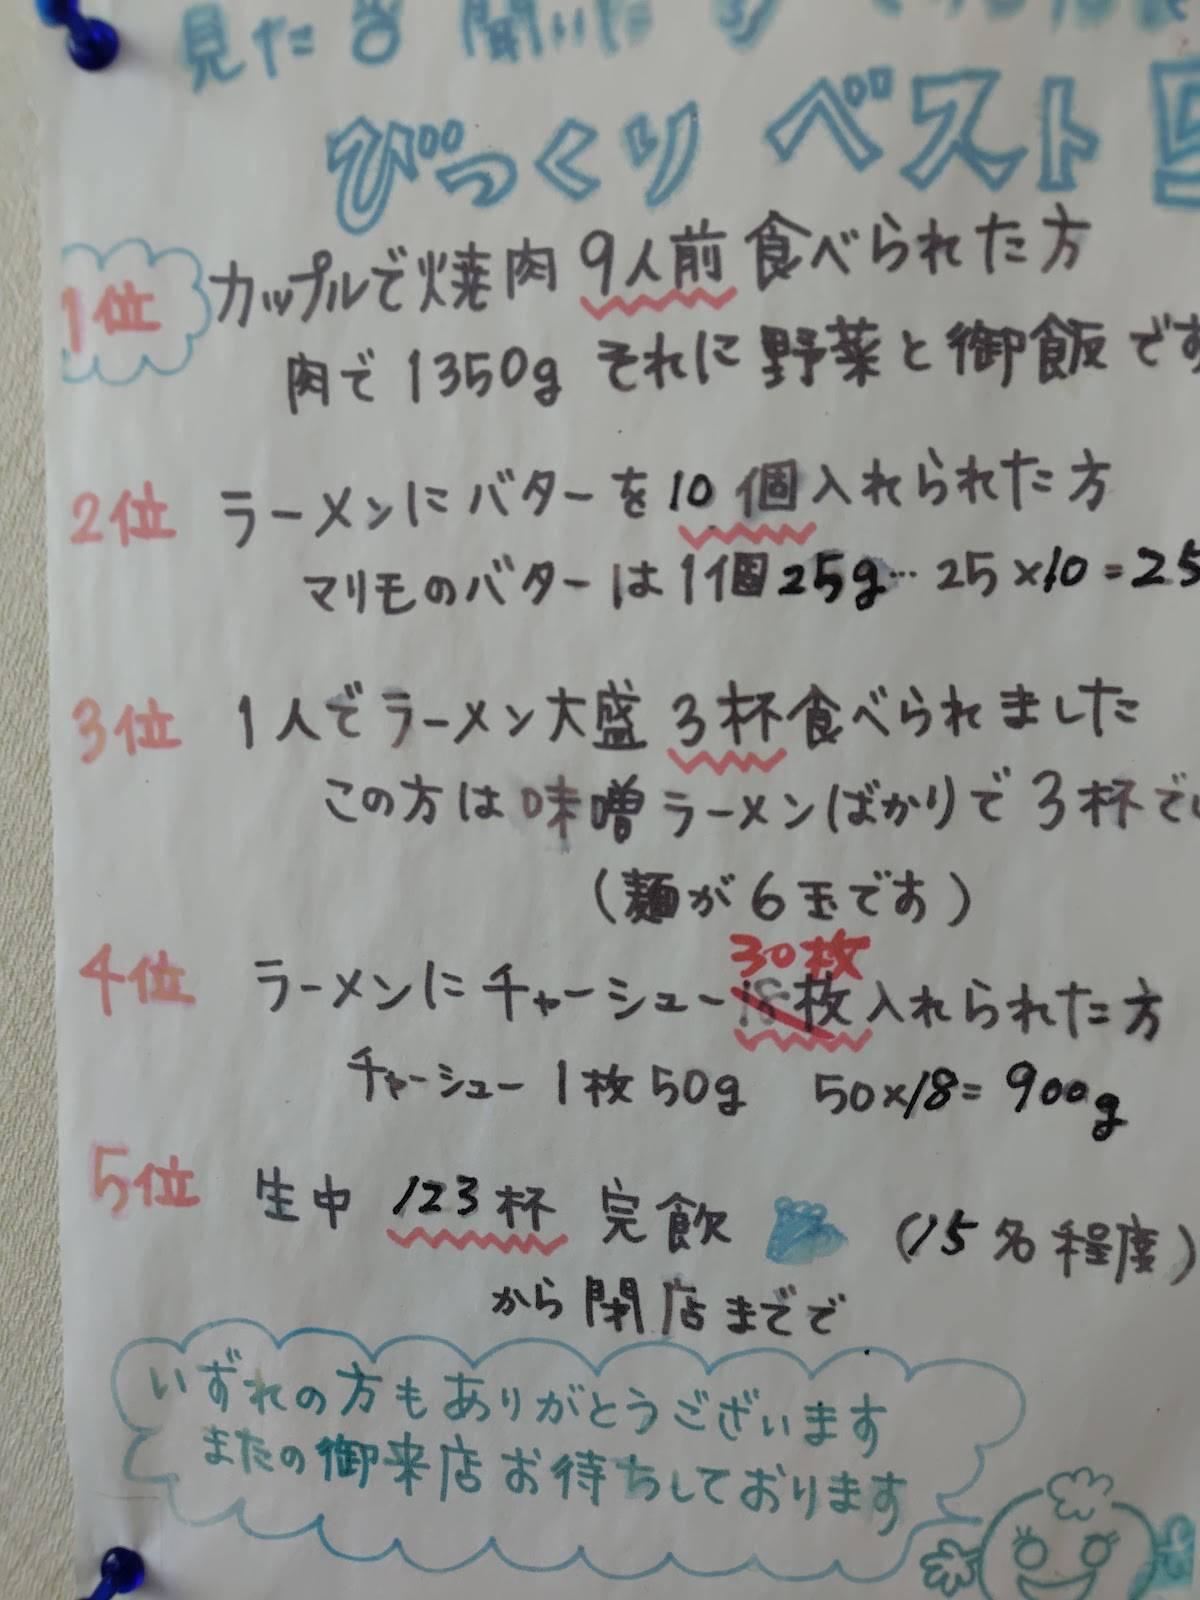 見た 聞いた
びっくり ベスト 5
1位 カップルで焼肉 9人前 食べられた方
肉で 1350g それに 野菜と御飯 です
2位 ラーメンにバターを10個入れられた方
マリモのバターは1個25g… 25×10=25
3位 1人でラーメン大盛 3杯食べられました
この方は味噌ラーメンばかりで3杯で
(麺が6玉です)
30枚
4位 ラーメンにチャーシュー18枚入れられた方
チャーシュー1枚50g 50×18=900g
5位 生中 123杯 完飲 (15名程度)
から閉店までで
いずれの方もありがとうございます
またの御来店お待ちしております